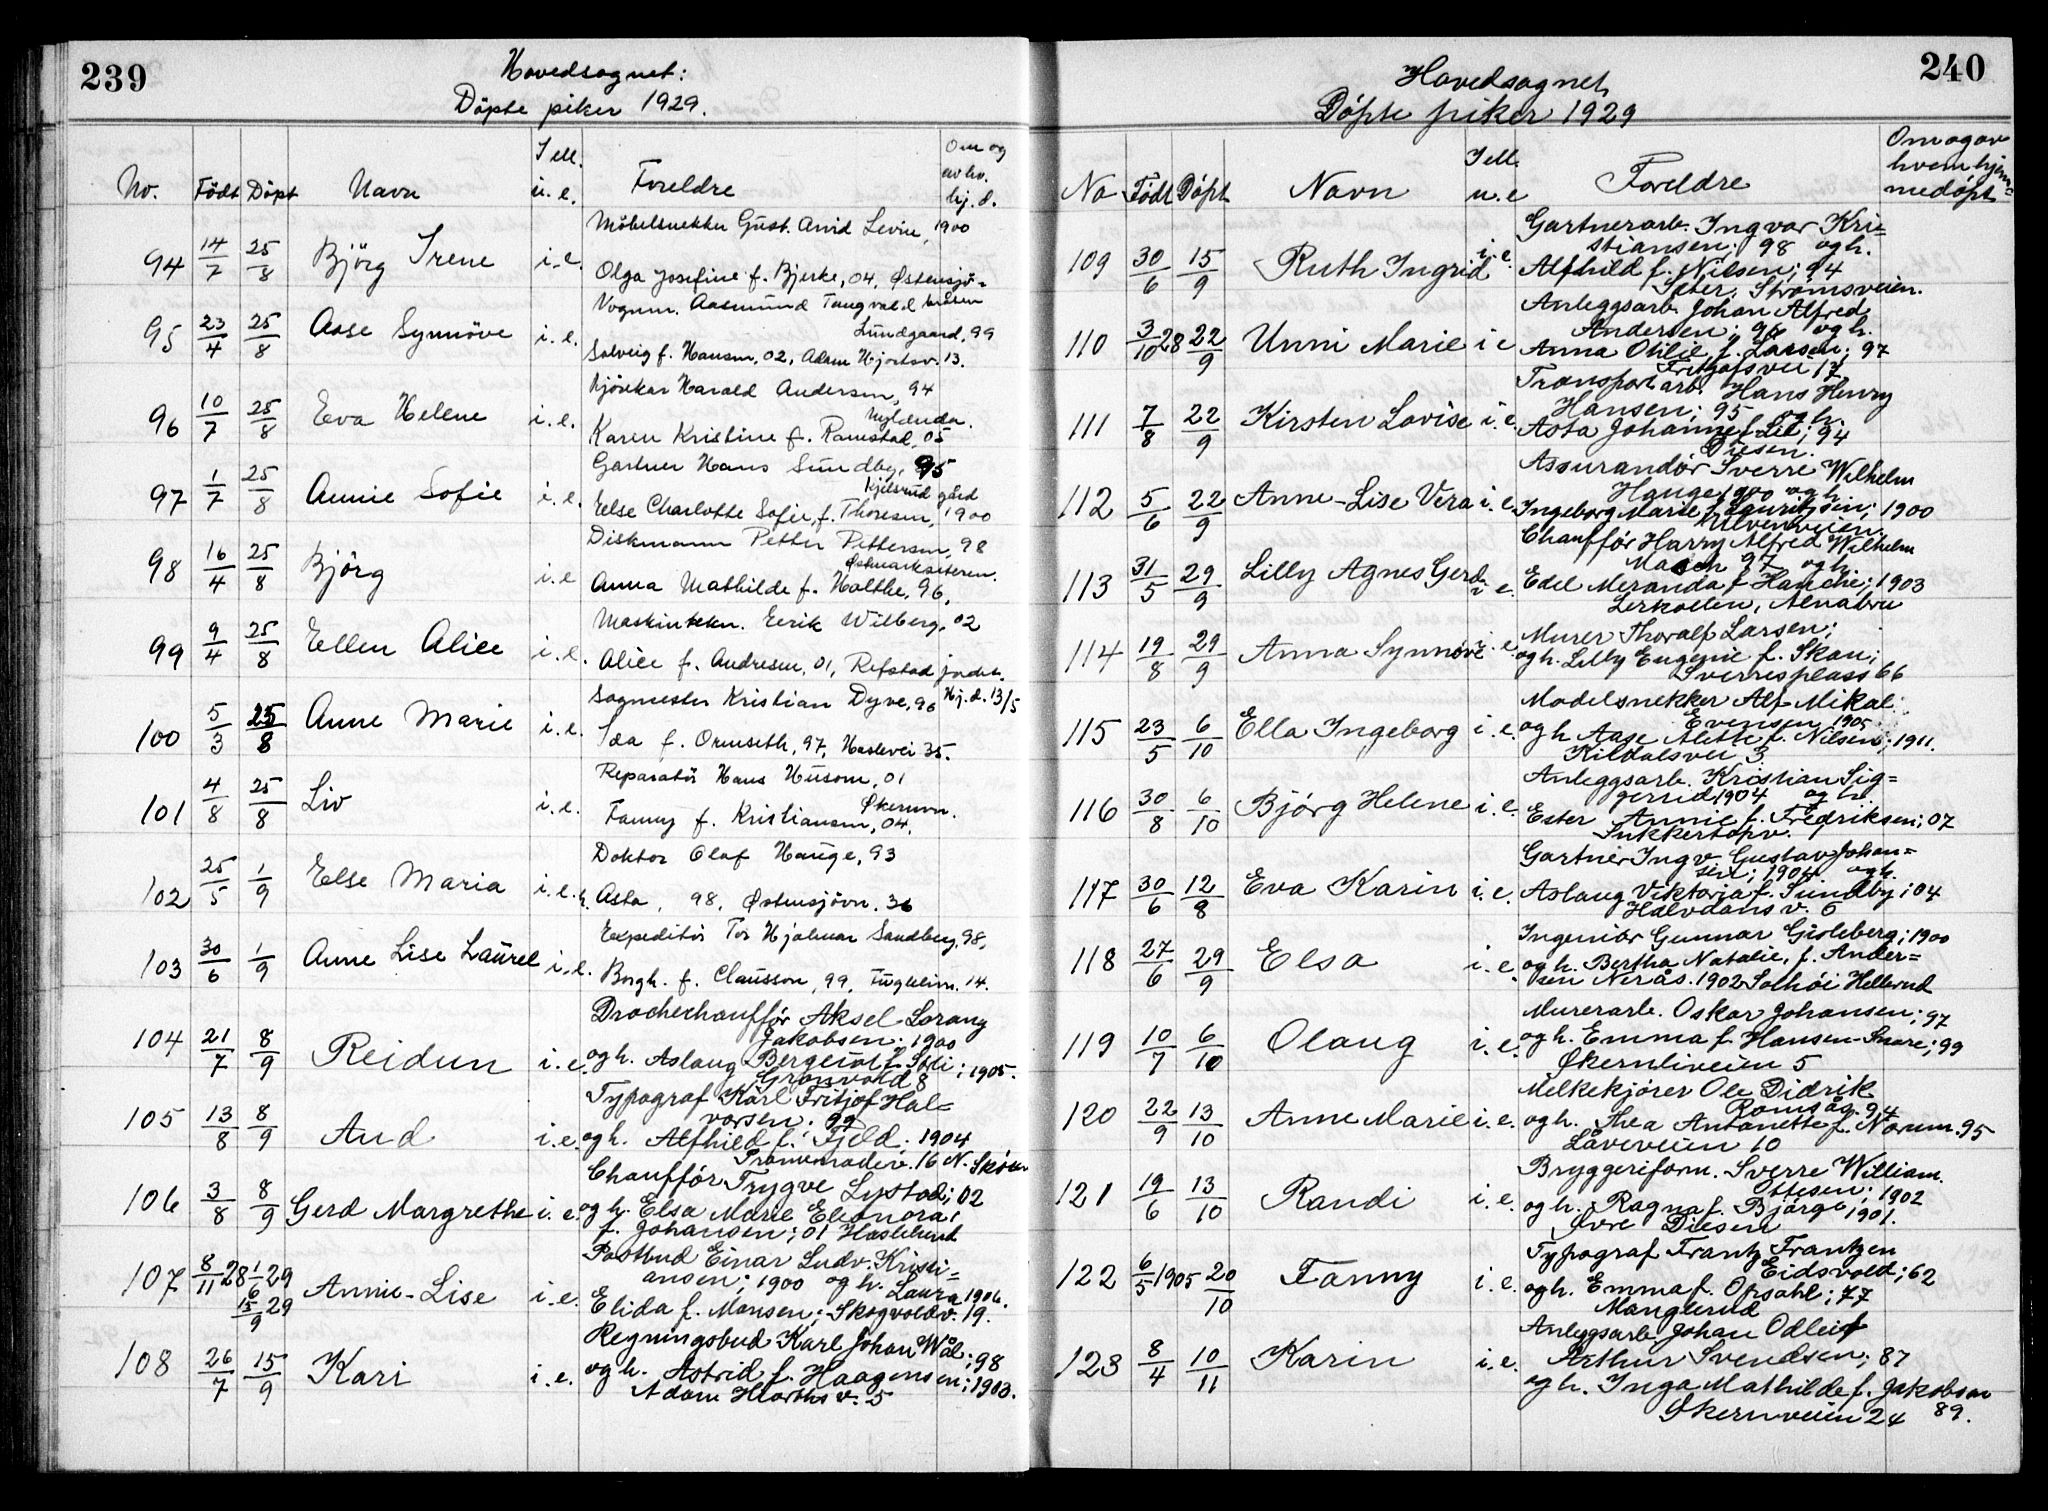 239
Hovedsognet:
Döpte piker 1929.
No. Født Döpt Navn I ell. u. e. Foreldre Om og av hv. hj. d.
Möbelsnekker Gust. Arvid Levin, 1900
94 14/7 25/8 Björg Irene i.e.
Olga Josefine f. Bjerke, 04, Østensjö-
Vognm. Aasmund Tangvald
Lundgaard, 99
95 23/4 25/8 Aase Synnöve i.e.
Solveig f. Hansen, 02, Adam Hjortsv. 13.
Kjörekar Harald Andersen, 94
Nylenda.
96 10/7 25/8 Eva Helene i.e.
Karen Kristine f. Ramstad, 05
Gartner Hans Sundby, 95
Kjelsrud gård
97 1/7 25/8 Annie Sofie i.e.
Else Charlotte Sofie, f. Thoresen, 1900
Diskmann Petter Pettersen, 98
Østmarkseteren.
98 16/4 25/8 Bjørg i.e
Anna Mathilde f. Holthe, 96,
Maskintekn. Eerik Wilberg, 02
99 9/4 25/8 Ellen Alice i.e.
Alice f. Andresen, 01, Refstad jordet.
Sagmester Kristian Dyve, 96 Hj. d. 13/5
100 5/3 25/8 Anne Marie i.e.
Ida f. Ormseth, 97, Haslevei 35.
Reparatör Hans Husom, 01
Økernvn.
101 4/8 25/8 Liv i.e.
Fanny f. Kristiansen, 04,
Doktor Olaf Hauge, 93
102 25/5 1/9 Else Maria i.e.
Asta, 98, Østensjövn. 36
Expeditör Tor Hjalmar Sandberg, 98,
103 30/6 1/9 Anne Lise Laurel i.e.
Borgh. f. Clausson, 99, Fugleheim. 14.
Droschechauffør Aksel Lorang
Jakobsen; 1900
104 21/7 8/9 Reidun i.e.
og h. Aslaug Bergeliot f. Stli; 1905.
Granvold 8
Typograf Karl Fritjof Hal=
vorsen. 99
105 13/8 8/9 Aud i.e.
og h. Alfhild f. Fjeld; 1904
Promenadev. 16 N. Skøien
Chauffør Trygve Lystad; 02
106 3/8 8/9 Gerd Margrethe i.e.
og h. Elsa Marie Eleonora;
f. Johansen; 01 Haslelund
Postbud Einar Ludv. Kristi=
ansen; 1900 og h. Laura 1906.
107 8/11 28 1/6 29 Annie-Lise i.e.
15/9 29
Elida f. Monsen; Skogvoldv. 19.
Regningsbud Karl Johan Wål; 98
108 26/7 15/9 Kari i.e.
og h. Astrid f. Haagensen; 1903.
Adam Hiorths v. 5
240
Hovedsognet
Døpte piker 1929
No Født Døpt Navn I ell. u. e Foreldre Om og av hvem hjem=medøpt
Gartnerarb. Ingvar Kri=
stiansen; 98 og h.
109 30/6 15/9 Ruth Ingrid i.e.
Alfhild f. Nilsen; 94
Seter, Strømsveien.
Anleggsarb. Johan Alfred
Andersen; 96 og h.
110 3/10 28 22/9 Unni Marie i e
Anna Otilie f. Larsen; 97
Fritjofsvei 17
Transportarb. Hans Henry
Hansen; 95 og h.
111 7/8 22/9 Kirsten Lovise i.e.
Asta Johanne f. Lie; 94
Diesen.
Assurandør Sverre Wilhelm
Hauge 1900 og h.
112 5/6 22/9 Anne-Lise Vera i.e.
Ingeborg Marie f. Lauritzen; 1900
Ulvenveien
Chauffør Harry Alfred Wilhelm
Masch 97 og h.
113 31/5 29/9 Lilly Agnes Gerd i e.
Edel Meranda f. Hanche; 1903
Lerkollen, Alnabru
Murer Thoralf Larsen;
114 19/8 29/9 Anna Synnøve i.e.
og h. Lilly Eugenie f. Skau;
Sverresplass 66
Modelsnekker Alf Mikal
Evensen 1905
115 23/5 6/10 Ella Ingeborg i.e.
og h. Aase Alette f. Nilsen; 1911.
Kildalsvei 3
Anleggsarb. Kristian Sig=
gerud 1904 og h.
116 30/8 6/10 Bjørg Helene i.e.
Ester Annie f. Fredriksen; 07
Sukkertopv. 1
Gartner Ingv. Gustav Johan=
sen; 1904 og h.
117 30/6 12/8 Eva Karin i.e.
Aslaug Viktoria f. Sundby; 04
Halvdans v. 5
Ingeniør Gunnar Gisleberg; 1900
118 27/6 29/9 Elsa i.e.
og h. Bertha Natalie, f. Ander=
sen Nerås. 1902 Solhøi Hellerud
Murerarb. Oskar Johansen; 97
119 10/7 6/10 Olaug i.e.
og h. Emma f. Hansen-Snare; 99
Økernliveien 5
Melkekjører Ole Didrik
Romsås. 94
120 22/9 13/10 Anne Marie i.e.
og h. Thea Antonette f. Norum. 95
Låveveien 10
Bryggeriform. Sverre William
Ottesen; 1902
121 19/6 13/10 Randi i.e.
og h. Ragna f. Bjørge 1901.
Øvre Diesen
Typograf Frantz Frantzen
Eidsvold; 62
122 6/5 1905 20/10 Fanny i.e.
og h. Emma f. Opsahl; 77
Manglerud
Anleggsarb. Johan Odleif
Arthur Svendsen; 87
123 8/4 10/11 Karin i.e.
og h. Inga Mathilde f. Jakobsen
Økernveien 24 89.